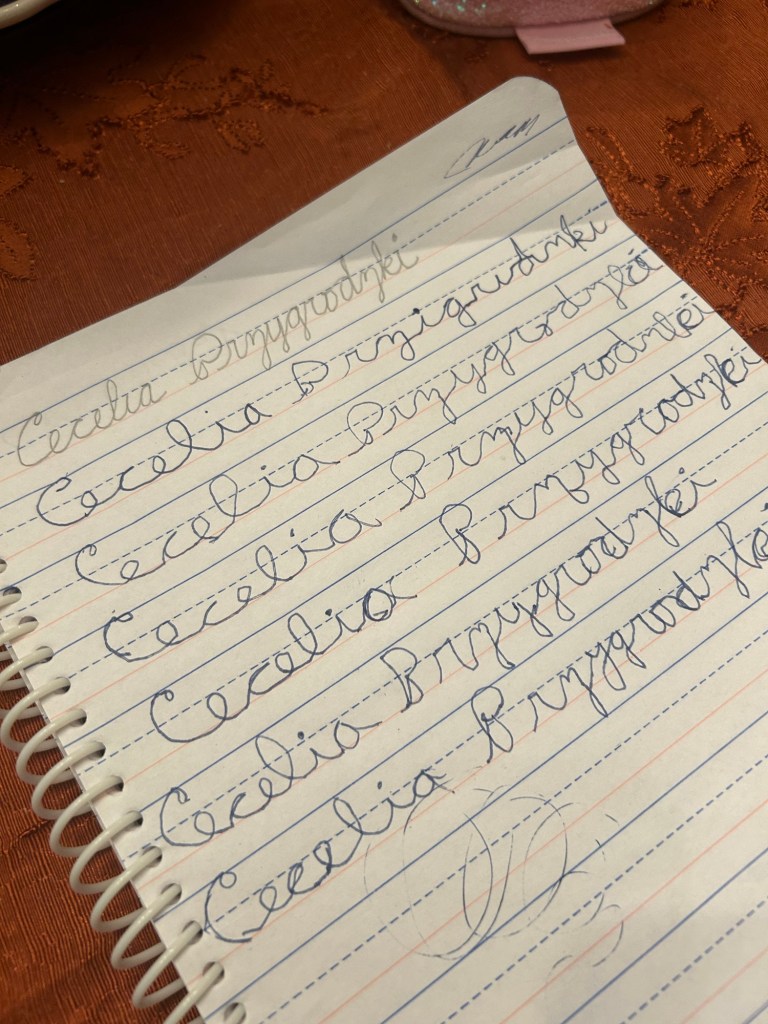 Cecelia Przygrodzki
Cecelia Przigrodzki
Cecelia Przygrodzki
Cecelia Przygrodzki
Cecelia Przygrodzki
Cecelia Przygrodzki
Cecelia Przygrodzki